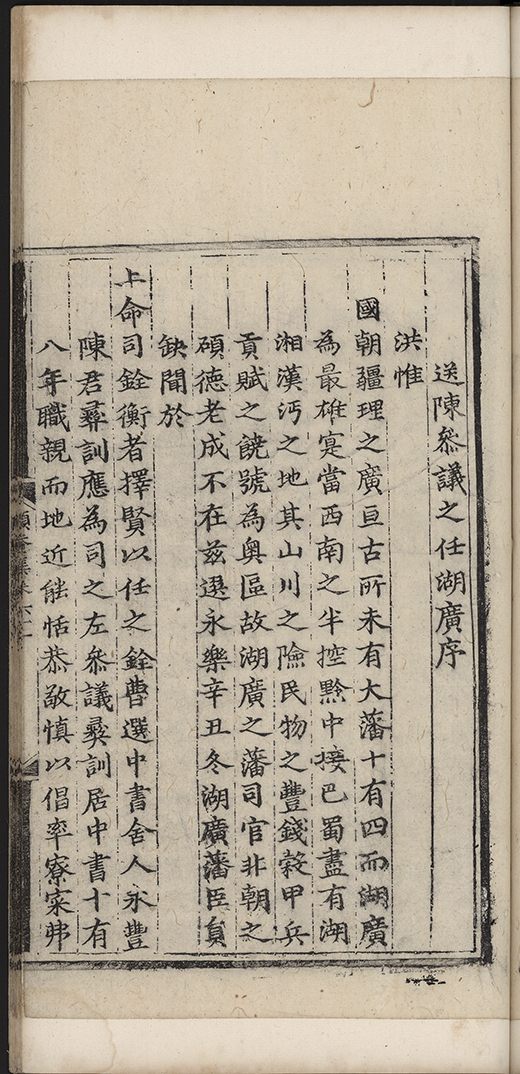 送陳叅議之任湖廣序
洪惟
國朝疆理之廣亘古所未有大藩十有四而湖廣
為最雄寔當西南之半控黔中接巴蜀盡有湖
湘漢沔之地其山川之險民物之豐錢穀甲兵
貢賦之饒號為奥區故湖廣之藩司官非朝之
碩德老成不在兹選永樂辛丑冬湖廣藩臣負
缺聞於
上命司銓衡者擇賢以任之銓曹選中書舍人永豐
陳君彛訓應為司之左叅議彛訓居中書十有
八年職親而地近能恬恭敬慎以倡率寮寀弗
頤菴集卷六